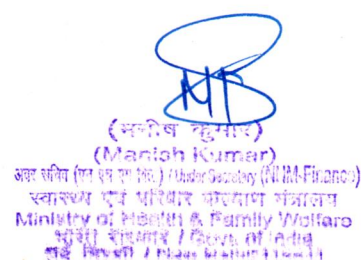 (मनीष कुमार)
(Manish Kumar)
अवर सचिव (एन एच एम वित्त) / Under Secretary (NHM-Finance)
स्वास्थ्य एवं परिवार कल्याण मंत्रालय
Ministry of Health & Family Welfare
भारत सरकार / Govt. of India
नई दिल्ली / New Delhi